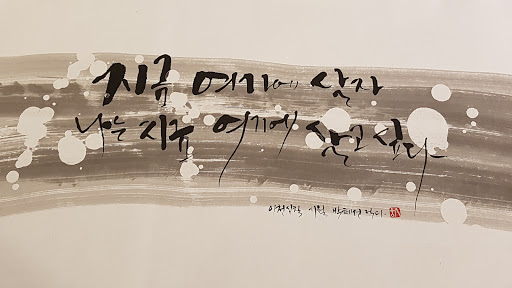 지금 여기에 살자
나는 지금 여기에 살고 싶다
이천십팔 시월